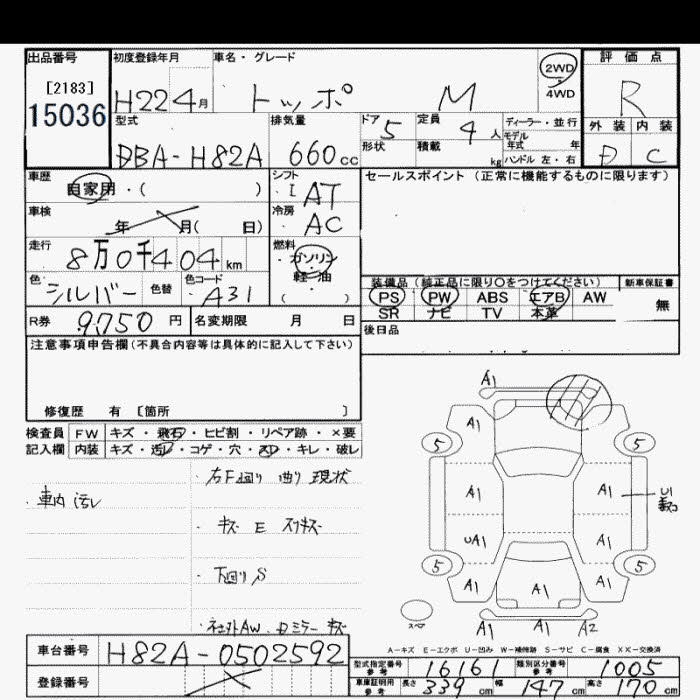 出品番号 初度登録年月 車名・グレード 2WD 4WD 評価点
[2183] H22 4月 トッポ M R
15036
型式 排気量 ドア 5 定員 4人 ディーラー・並行 外装 内装
DBA-H82A 660cc 形状 積載 kg モデル年式 年 D C
ハンドル 左・右
車歴 自家用・( ) シフト ・I AT セールスポイント (正常に機能するものに限ります)
車検 年 月( 日) 冷房 ・AC
走行 8万0千404km 燃料 ・ガソリン
・軽・油
色 シルバー 色替 色コード ・A31 ( )
装備品 (純正品に限り○をつけてください) 新車保証書
PS PW ABS エアB AW 無
SR ナビ TV 本革
R券 9,750円 名変期限 月 日 後日品
注意事項申告欄(不具合内容等は具体的に記入して下さい)
修復歴 有 [箇所 ]
検査員 FW キズ・飛石・ヒビ割・リペア跡・×要
記入欄 内装 キズ・汚レ・コゲ・穴・スレ・キレ・破レ
右F廻り 曲り 現状
・車内 汚レ
・キズ E スリキズ
・下廻り S
・社外AW. ミラー キズ
A1
A1
5 5
A1 A1 U1
UA1 A1
5 5
A1 A1 A1
スペア A1 A1 A2
A-キズ E-エクボ U-凹み W-補修跡 S-サビ C-腐食 XX-交換済
車台番号 H82A-0502592
型式指定番号 参考 16161 類別区分番号 参考 1005
登録番号
車庫証明用 参考 長さ 339cm 幅 147cm 高さ 170cm